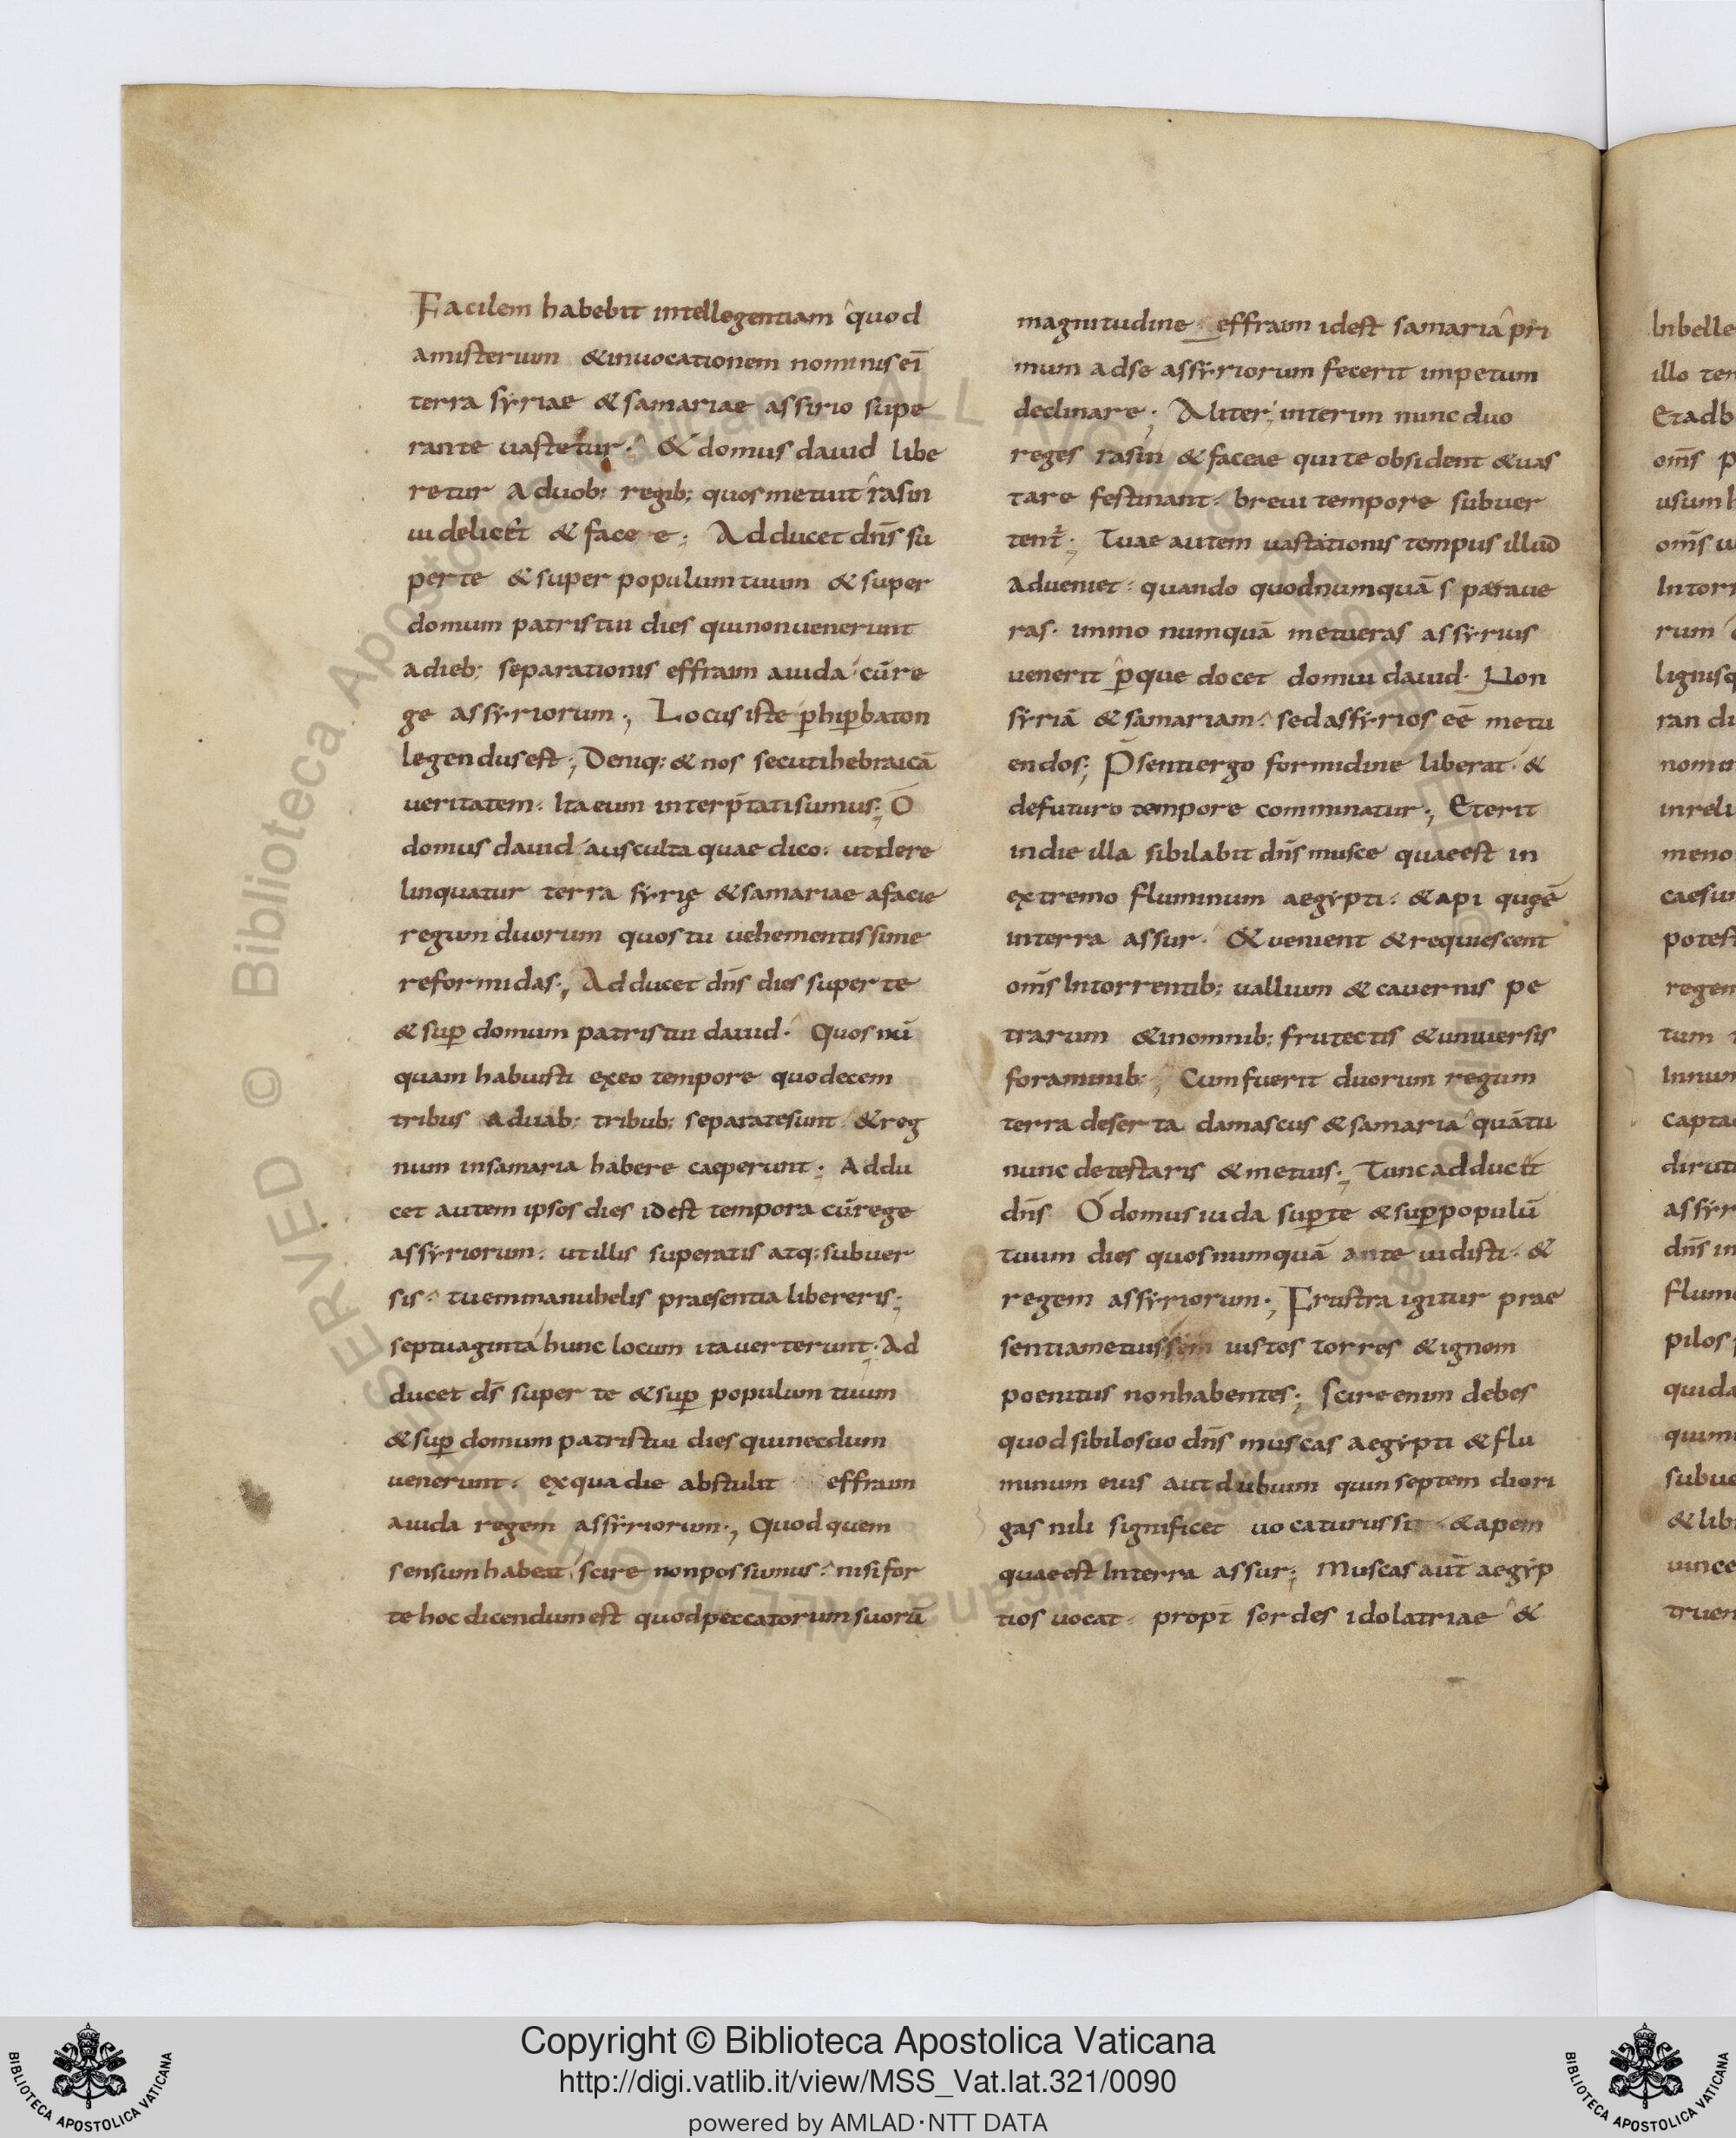 Facilem habebit intellegentiam quod
amisterium &inuocationem nominis ei̅
terra syriae & samariae assirio supe
rante uastetur. & domus dauid libe
retur aduob; regib; quos metuit rasin
uidelicet & facee; Adducet dn̅s su
per te & super populum tuum & super
domum patris tui dies qui non uenerunt
adieb; separationis effraim aiuda cū re
ge assyriorum; Locus iste p̲ hip̲baton
legendus est; Deniq; & nos secuti hebraicā
ueritatem. Ita eum interp̅tati sumus; O
domus dauid ausculta quae dico. ut dere
linquatur terra syrię & samariae a facie
regum duorum quos tu uehementissime
reformidas; Adducet dn̅s dies super te
& sup̲ domum patris tui dauid. Quos nū
quam habuisti ex eo tempore quo decem
tribus aduab; tribub; separate sunt & reg
num in samaria habere caeperunt; Addu
cet autem ipsos dies id est tempora cū rege
assyriorum. ut illis superatis atq; subuer
sis. tu emmanuhelis praesentia libereris;
septuaginta hunc locum ita uerterunt; Ad
ducet d̅s super te & sup̲ populum tuum
& sup̲ domum patris tui dies qui necdum
uenerunt. ex qua die abstulit effraim
aiuda regem assyriorum; Quod quem
sensum habeat scire non possumus. nisi for
te hoc dicendum est quod peccatorum suorū
magnitudine effraim id est samaria pri
mum ad se assyriorum fecerit impetum
declinare; Aliter; interim nunc duo
reges rasin & faceae qui te obsident & uas
tare festinant. breui tempore subuer
tent̅; Tuae autem uastationis tempus illud
adueniet. quando quod numquā speraue
ras. immo numquā metueras assyrius
uenerit p̲que docet domui dauid. Non
syriā & samariam. sed assyrios ee̅ metu
endos; P̅senti ergo formidine liberat. &
de futuro tempore comminatur; Et erit
in die illa sibilabit dn̅s musce quae est in
extremo fluminum aegypti. & api quę ē
in terra assur. & uenient & requiescent
om̅s In torrentib; uallium & cauernis pe
trarum & in omnib; frutectis & uniuersis
foraminib; Cum fuerit duorum regum
terra deserta damascus & samaria quā tu
nunc detestaris & metuis; Tunc adducet
dn̅s O domus iuda sup̲ te & sup̲ populū
tuum dies quos numquā ante uidisti. &
regem assyriorum; Frustra igitur prae
sentia metuis uistos torres & ignem
poenitus non habentes; Scire enim debes
quod sibilo suo dn̅s muscas aegypti & flu
minum eius aut dubium quin septem diori
gas nili significet uocaturus sit & apem
quae est In terra assur; Muscas aut̅ aegyp
tios uocat. propt̅ sordes idolatriae &
Copyright © Biblioteca Apostolica Vaticana
http://digi.vatlib.it/view/MSS_Vat.lat.321/0090
powered by AMLAD·NTT DATA
BIBLIOTECA APOSTOLICA VATICANA
BIBLIOTECA APOSTOLICA VATICANA